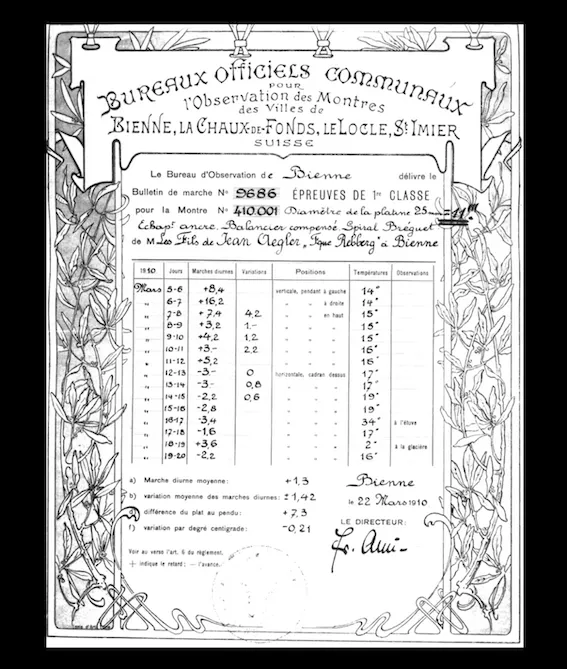 BUREAUX OFFICIELS COMMUNAUX
POUR
l'Observation des Montres
des Villes de
BIENNE, LA CHAUX-DE-FONDS, LE LOCLE, St IMIER
SUISSE
Le Bureau d'Observation de Bienne délivre le
Bulletin de marche No 9686 ÉPREUVES DE 1re CLASSE
pour la Montre No 410.001 Diamètre de la platine 25 mm = 11'''
Echapt ancre. Balancier compensé Spiral Bréguet
de M Les Fils de Jean Aegler, „Fque Rebberg" à Bienne
1910 Jours Marches diurnes Variations Positions Températures Observations
Mars 5-6 +8,4 verticale, pendant à gauche 14°
„ 6-7 +16,2 „ „ à droite 14°
„ 7-8 +7,4 4,2 „ „ en haut 15°
„ 8-9 +3,2 1.- „ „ „ 15°
„ 9-10 +4,2 1,2 „ „ „ 15°
„ 10-11 +3.- 2,2 „ „ „ 16°
„ 11-12 +5,2 „ „ „ 16°
„ 12-13 -3.- 0 horizontale, cadran dessus 17°
„ 13-14 -3.- 0,8 „ „ „ 17°
„ 14-15 -2,2 0,6 „ „ „ 19°
„ 15-16 -2,8 „ „ „ 19°
„ 16-17 -3,4 „ „ „ 34° à l'étuve
„ 17-18 -1,6 „ „ „ 17°
„ 18-19 +3,6 „ „ „ 2° à la glacière
„ 19-20 -2,2 „ „ „ 16°
a) Marche diurne moyenne: +1,3
b) variation moyenne des marches diurnes: ±1,42
d) différence du plat au pendu: +7,3
f) variation par degré centigrade: -0,21
Voir au verso l'art. 6 du règlement.
+ indique le retard: — l'avance.
Bienne
le 22 Mars 1910
LE DIRECTEUR: